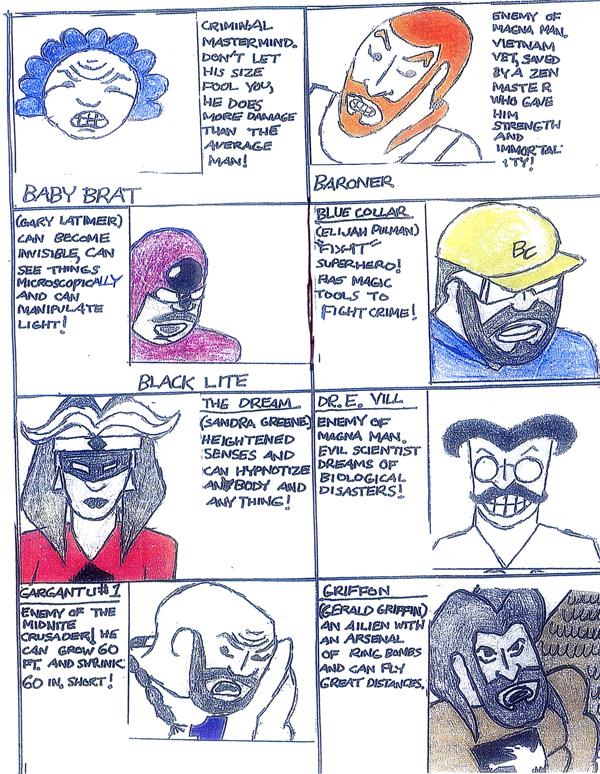 CRIMINAL
MASTERMIND.
DON'T LET
HIS SIZE
FOOL YOU,
HE DOES
MORE DAMAGE
THAN THE
AVERAGE
MAN!
BABY BRAT
ENEMY OF
MAGNA MAN.
VIETNAM
VET, SAVED
BY A ZEN
MASTER
WHO GAVE
HIM
STRENGTH
AND
IMMORTAL-
ITY!
BARONER
(GARY LATIMER)
CAN BECOME
INVISIBLE, CAN
SEE THINGS
MICROSCOPICALLY
AND CAN
MANIPULATE
LIGHT!
BLACK LITE
BLUE COLLAR
(ELIJAH PULMAN)
"FIXIT"
SUPERHERO!
HAS MAGIC
TOOLS TO
FIGHT CRIME!
BC
THE DREAM
(SANDRA GREENE)
HEIGHTENED
SENSES AND
CAN HYPNOTIZE
ANYBODY AND
ANYTHING!
DR. E. VILL
ENEMY OF
MAGNA MAN.
EVIL SCIENTIST
DREAMS OF
BIOLOGICAL
DISASTERS!
GARGANTU #1
ENEMY OF THE
MIDNITE
CRUSADER! HE
CAN GROW 60
FT. AND SHRINK
60 IN. SHORT!
GRIFFON
(GERALD GRIFFIN)
AN AILIEN WITH
AN ARSENAL
OF RING BOMBS
AND CAN FLY
GREAT DISTANCES.